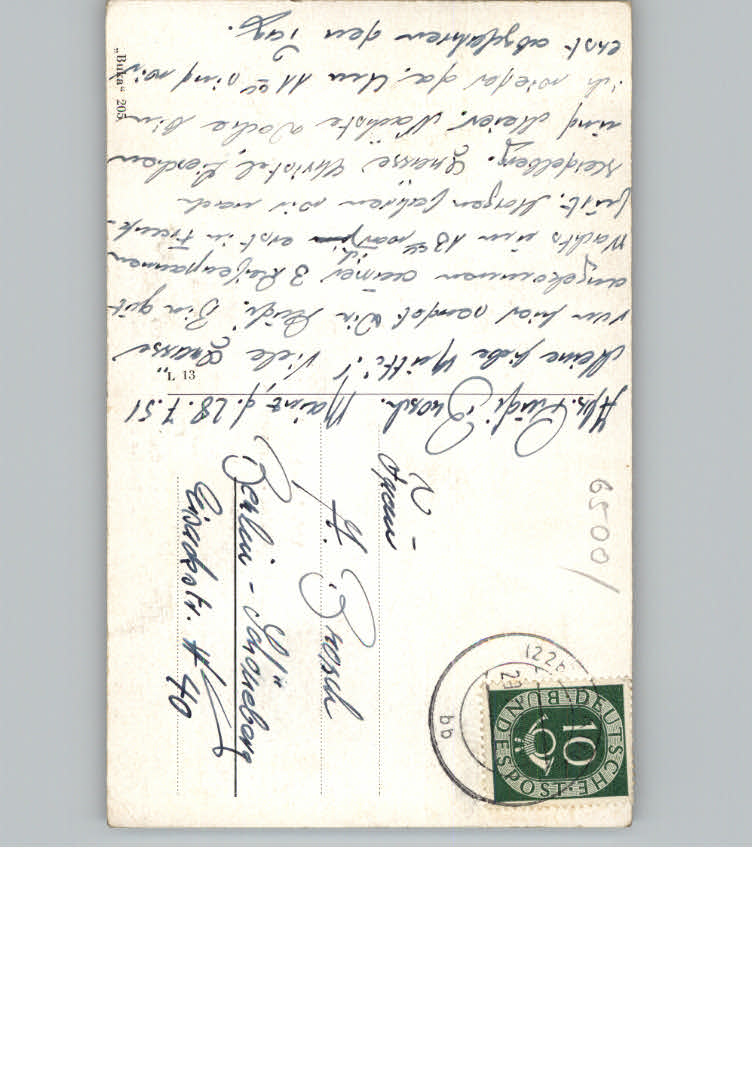 Abs. Rudi Brosch. Mainz, d. 28.7.51
Meine liebe Mutti! Viele Grüsse
von hier sendet Dir Rudi. Bin gut
angekommen ausser 3 Reifenpannen
Nachts um 13 erst in Frank-
furt. Morgen fahren wir nach
Heidelberg. Grüsse Christel,
und Meier. Nächste Woche bin
ich wieder da. Um 11 sind wir
erst abgefahren den Tag.
"Buka" 205
L 13
Frau
H. Brosch
Berlin - Schöneberg
Eisackstr. 40
6500/
DEUTSCHE BUNDESPOST
10
(22b
bb